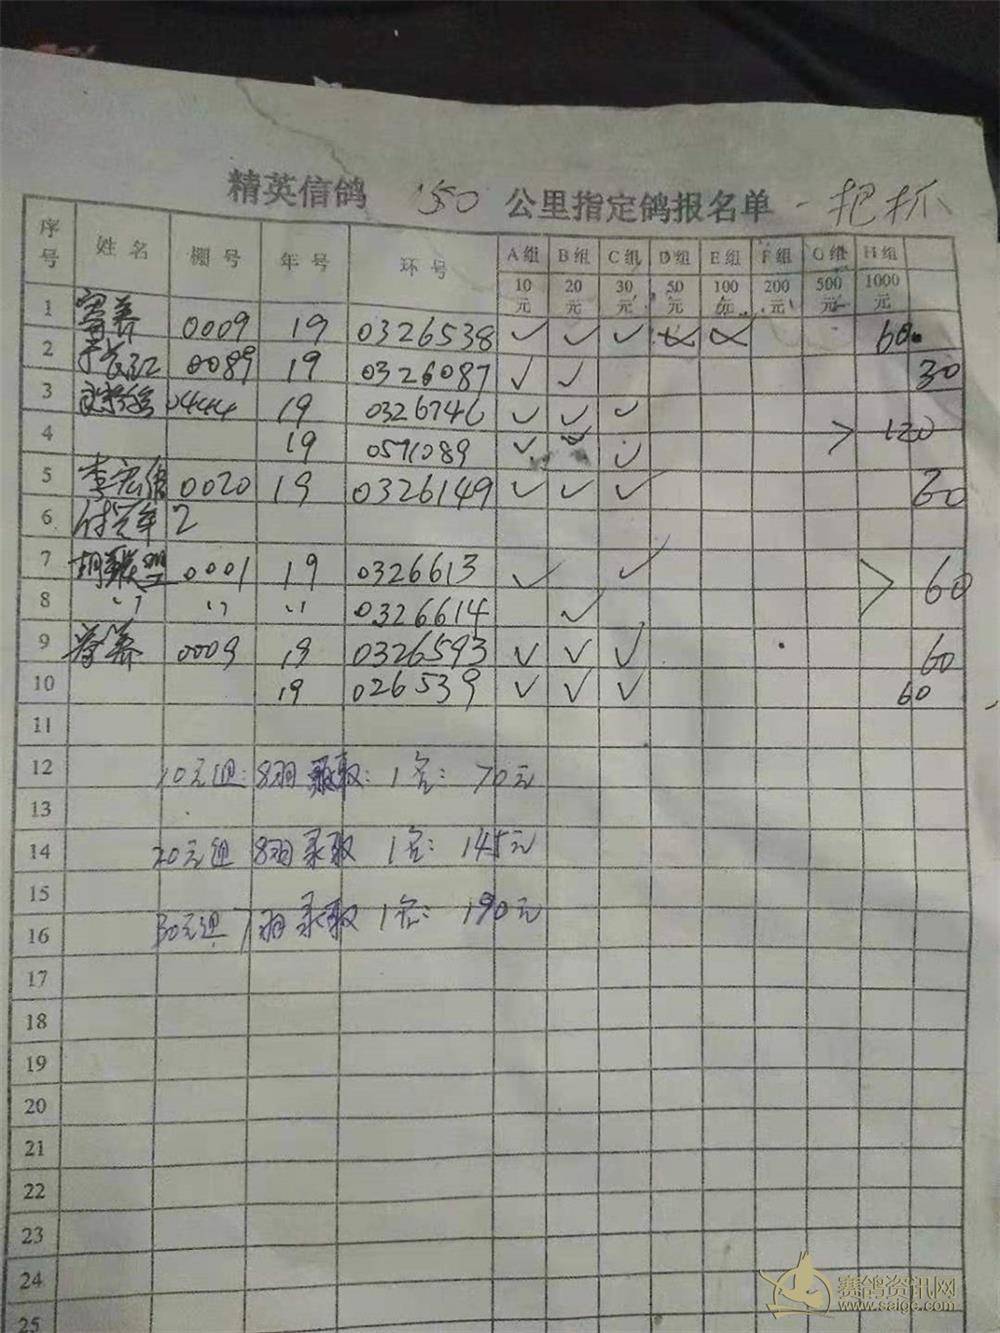 精英信鸽 150 公里指定鸽报名单 一把抓
序号 姓名 棚号 年号 环号 A组 B组 C组 D组 E组 F组 G组 H组
10元 20元 30元 50元 100元 200元 500元 1000元
1 寄养 0009 19 0326538 ✓ ✓ ✓ 60
2 0089 19 0326087 ✓ ✓ 30
3 0444 19 0326746 ✓ ✓ ✓
4 19 0571089 ✓ ✓ ✓ > 120
5 李宏伟 0020 19 0326149 ✓ ✓ ✓ 60
6
7 0001 19 0326613 ✓ ✓ > 60
8 〃 〃 〃 0326614 ✓
9 寄养 0009 19 0326593 ✓ ✓ ✓ 60
10 19 026539 ✓ ✓ ✓ 60
11
12 10元组: 8羽 录取: 1名: 70元
13
14 20元组 8羽 录取 1名: 145元
15
16 30元组 7羽 录取 1名: 190元
17
18
19
20
21
22
23
24
25
赛鸽资讯网
www.saige.com